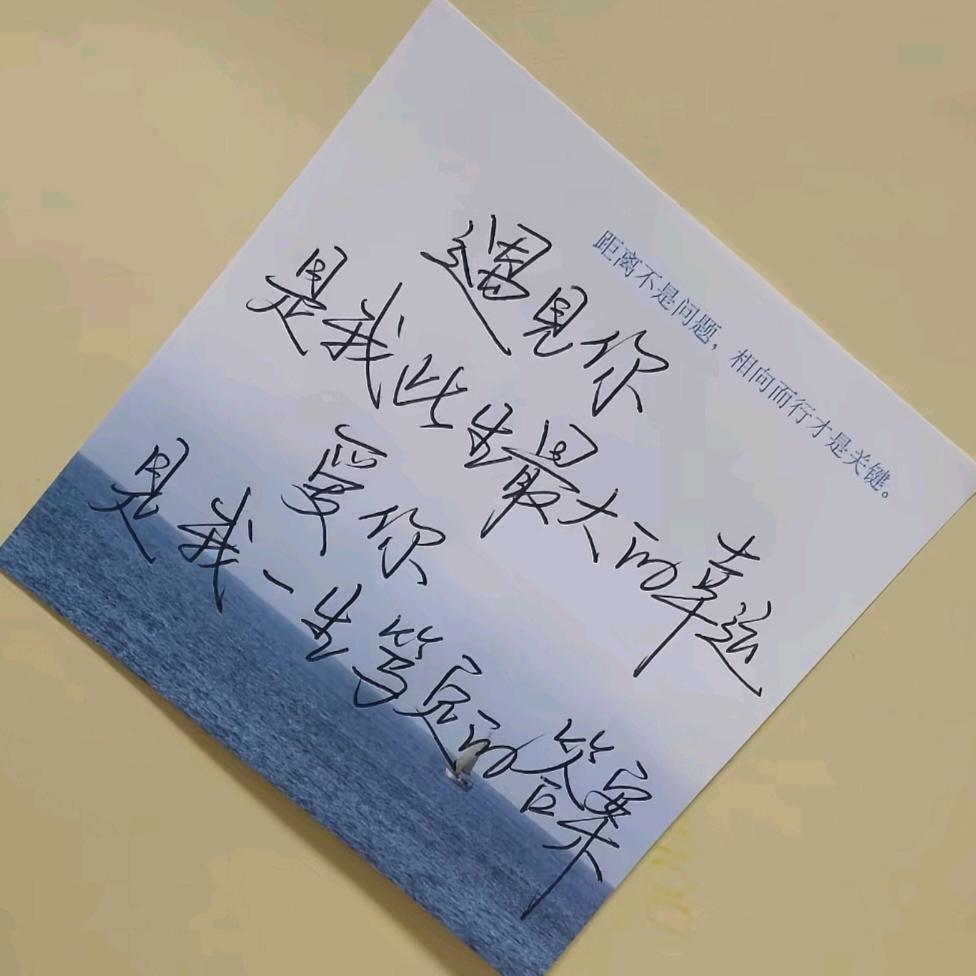 距离不是问题，相向而行才是关键。
遇见你
是我此生最大的幸运
爱你
是我一生笃定的答案